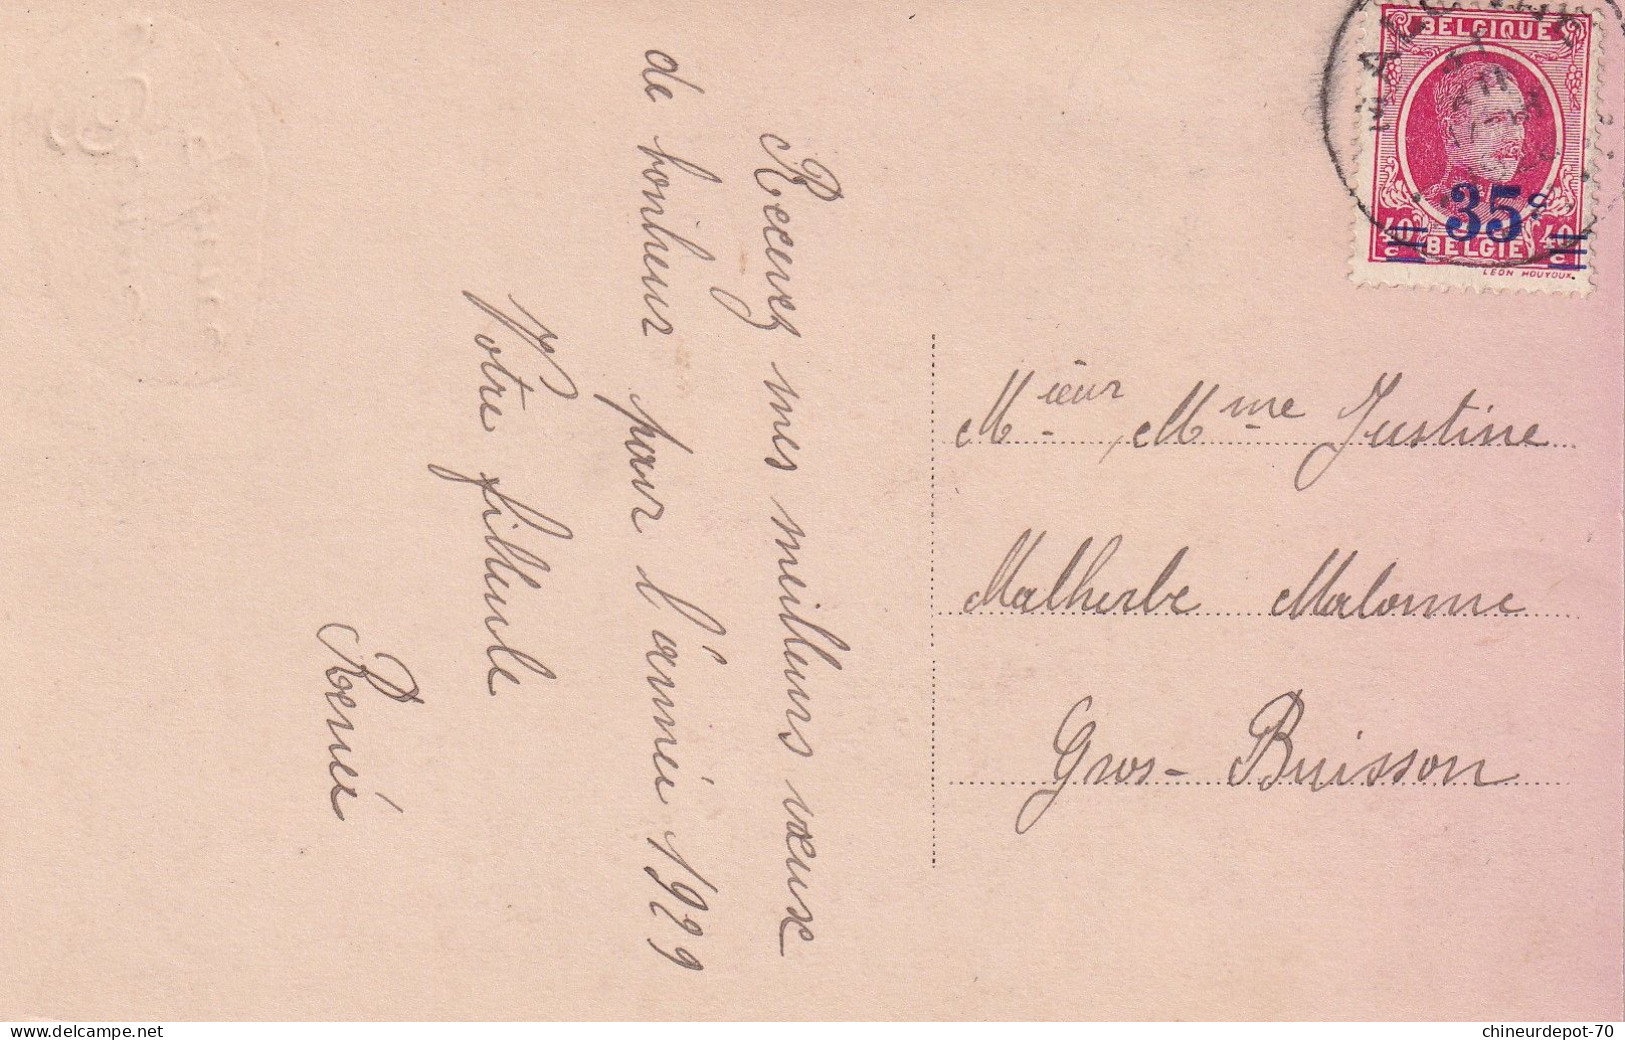 Recevez mes meilleurs vœux
de bonheur pour l'année 1929
Votre filleule
Renée
BELGIQUE
35c
40 c 40 c
BELGIE
LEON HOUYOUX
Mieur, Mme Justine
Malherbe Malonne
Gros-Buisson
chineurdepot-70